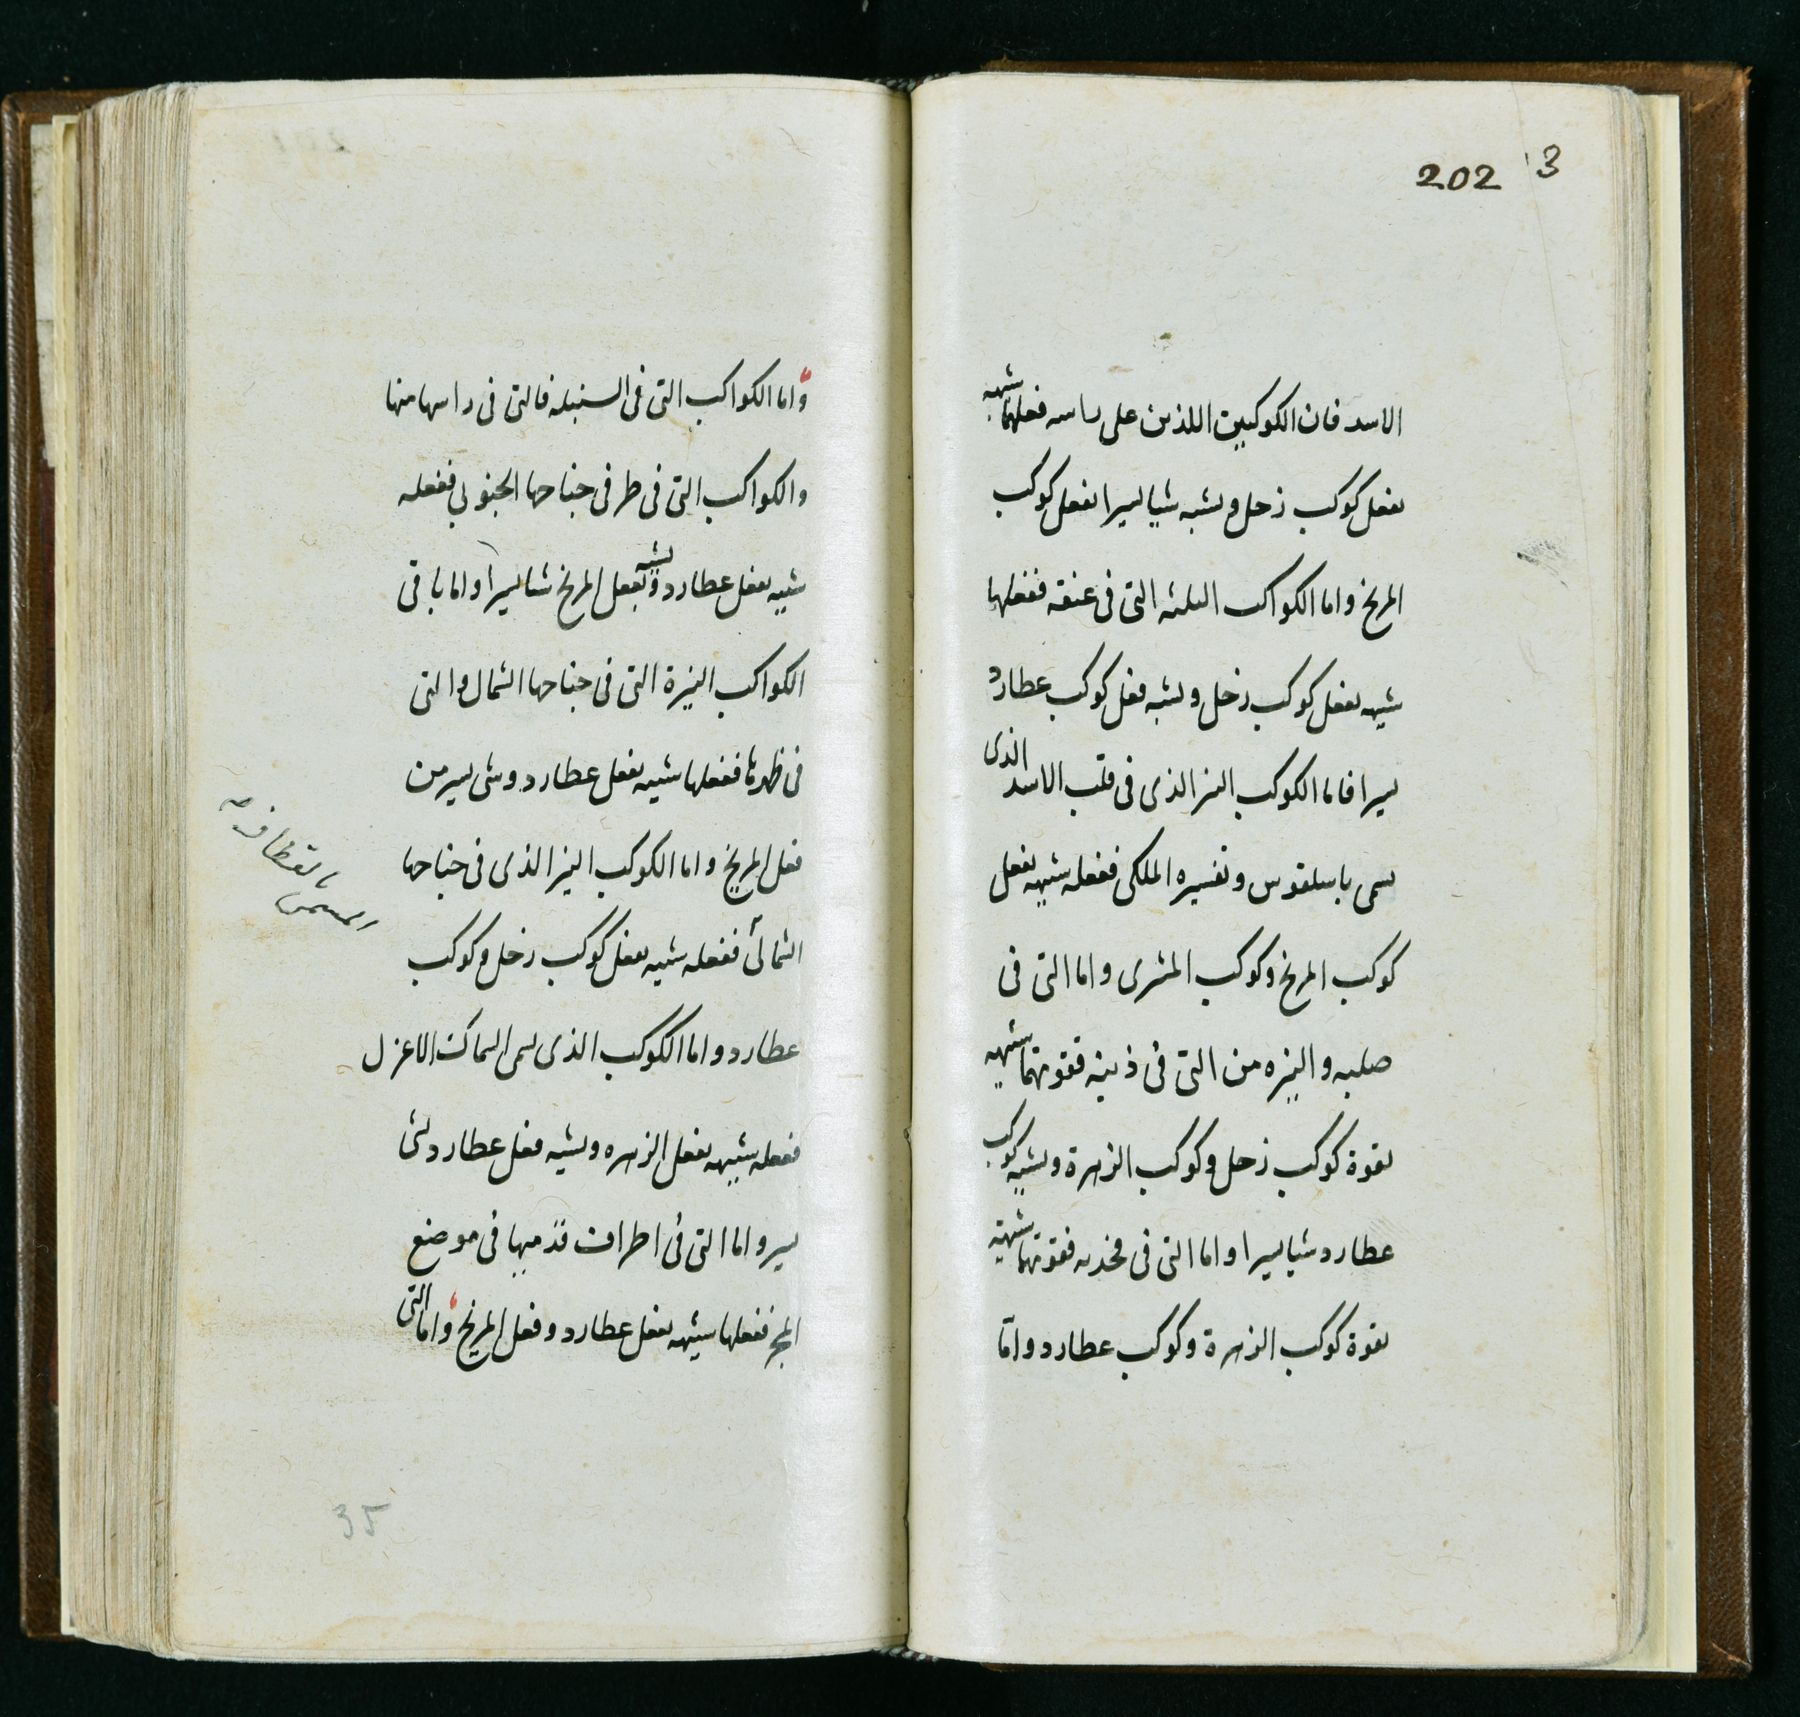 202 3
الاسد فان الكوكبين اللذين على راسه فعلهما شبيه
بفعل كوكب زحل ويشبه شيا يسيرا بفعل كوكب
المريخ واما الكواكب الثلثه التى فى عنقه ففعلها
شبيه بفعل كوكب زحل ويشبه فعل كوكب عطارد
يسيرا فاما الكوكب النير الذى فى قلب الاسد الذى
يسمى باسلقوس وتفسيره الملكى ففعله شبيه بفعل
كوكب المريخ وكوكب المشترى واما التى فى
صلبه والنيره من التى فى ذنبه فقوتهما شبيه
بقوة كوكب زحل وكوكب الزهرة ويشبه كوكب
عطارد شيا يسيرا واما التى فى فخذيه فقوتهما شبيهة
بقوة كوكب الزهرة وكوكب عطارد وامّا
واما الكواكب التى فى السنبله فالتى فى راسها منها
والكواكب التى فى طرفى جناحها الجنوبي ففعله
شبيه بفعل عطارد ويشبه بفعل المريخ شيا يسيرا واما باقى
الكواكب النيرة التى فى جناحها الشمال والتى
فى ظهرها ففعلها شبيه بفعل عطارد وشى يسير من
فعل المريخ واما الكوكب النير الذى فى جناحها
الشمالى ففعله شبيه بفعل كوكب زحل وكوكب
عطارد واما الكوكب الذى يسمى السماك الاعزل
ففعله شبيهه بفعل الزهره ويشبه فعل عطارد بشى
يسير واما التى فى اطراف قدميها فى موضع
الجر ففعلها شبيهه بفعل عطارد وفعل المريخ واما التى
المسمى بالقطافه
35